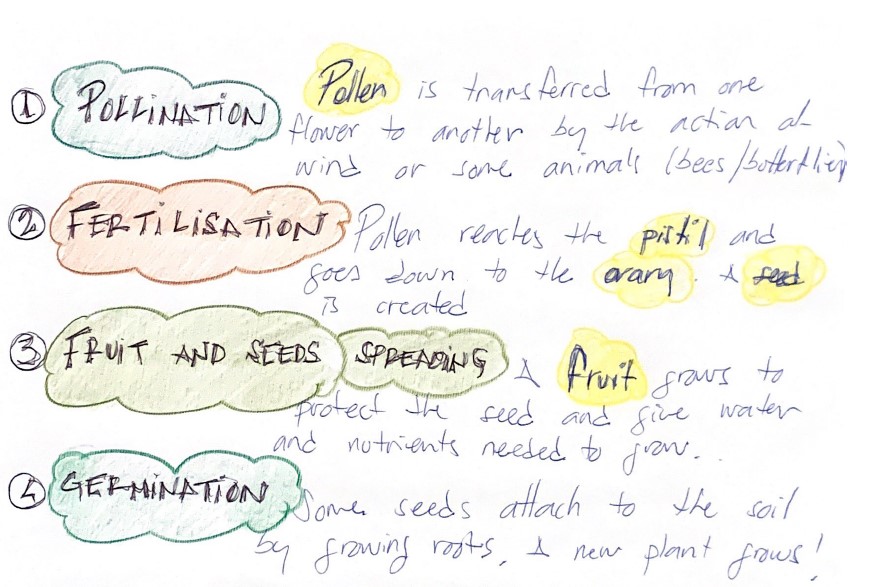 ① POLLINATION Pollen is transferred from one
flower to another by the action of
wind or some animals (bees/butterflies)
② FERTILISATION Pollen reaches the pistil and
goes down to the ovary. A seed
is created
③ FRUIT AND SEEDS SPREADING A fruit grows to
protect the seed and give water
and nutrients needed to grow.
④ GERMINATION Some seeds attach to the soil
by growing roots. A new plant grows!